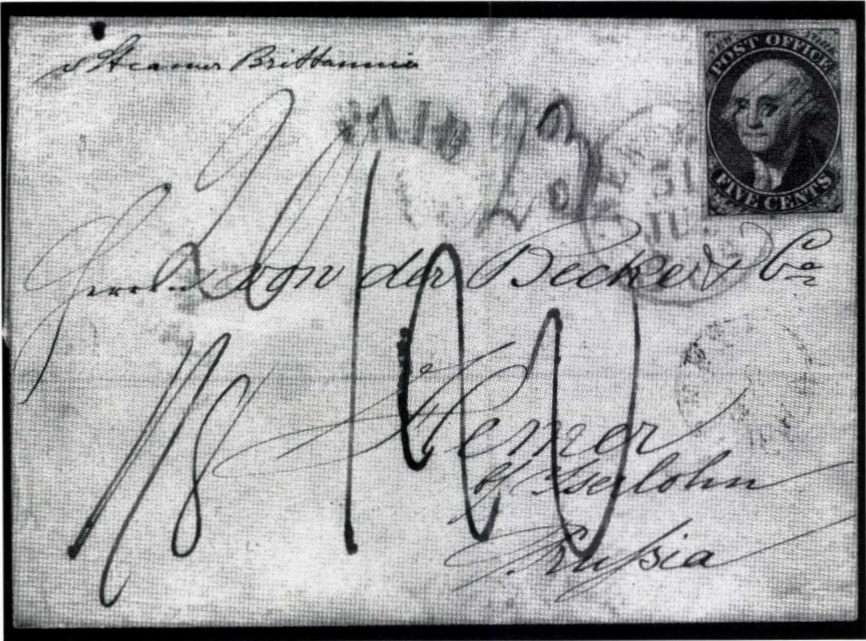 pr Steamer Brittannia
POST OFFICE
FIVE CENTS
PAID
23
31
JUL
Herren von der Becke & Co
Hemer
b/ Iserlohn
Prußia